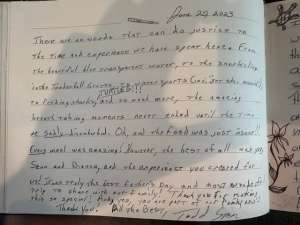 June 20, 2023
There are no words that can do justice to
the time and experience we have spent here. From
the beautiful blue transparent water, to the snorkeling
in the water sports
TURTLES!!
to feeding sharks, and so much more, the amazing
breath taking moments never ended until the time
we sadly disembarked. Oh, and the food was just insane!!
Every meal was amazing! However, the best of all was you
Sean and and the experience you created for
us! It was truly the best Father's Day and most wonderful
trip to share with our family! Thank you for making
this so special! you are part of our family now!
Thank You, All the Best,
Todd